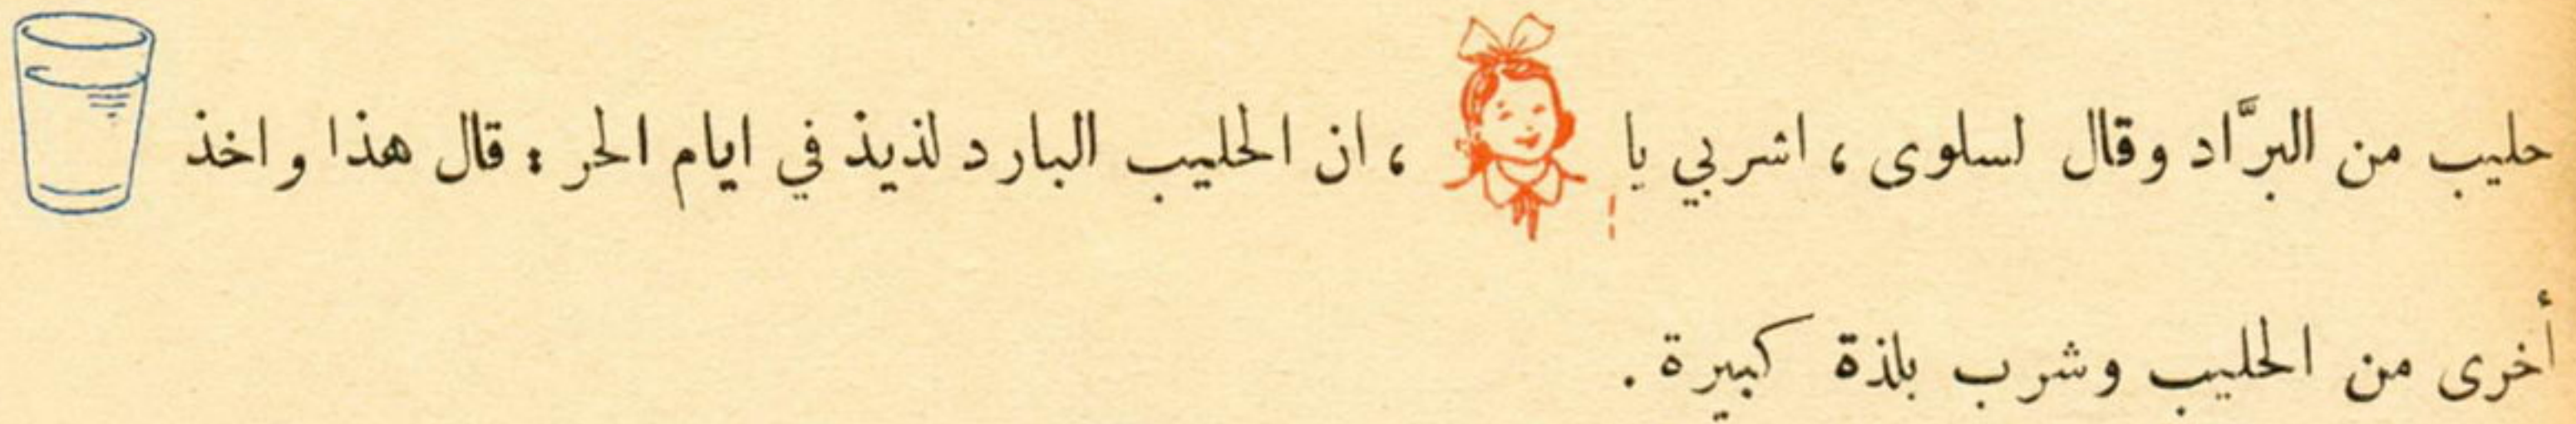 حليب من البرَّاد وقال لسلوى ، اشربي يا ، ان الحليب البارد لذيذ في ايام الحر : قال هذا واخذ
أخرى من الحليب وشرب بلذة كبيرة .